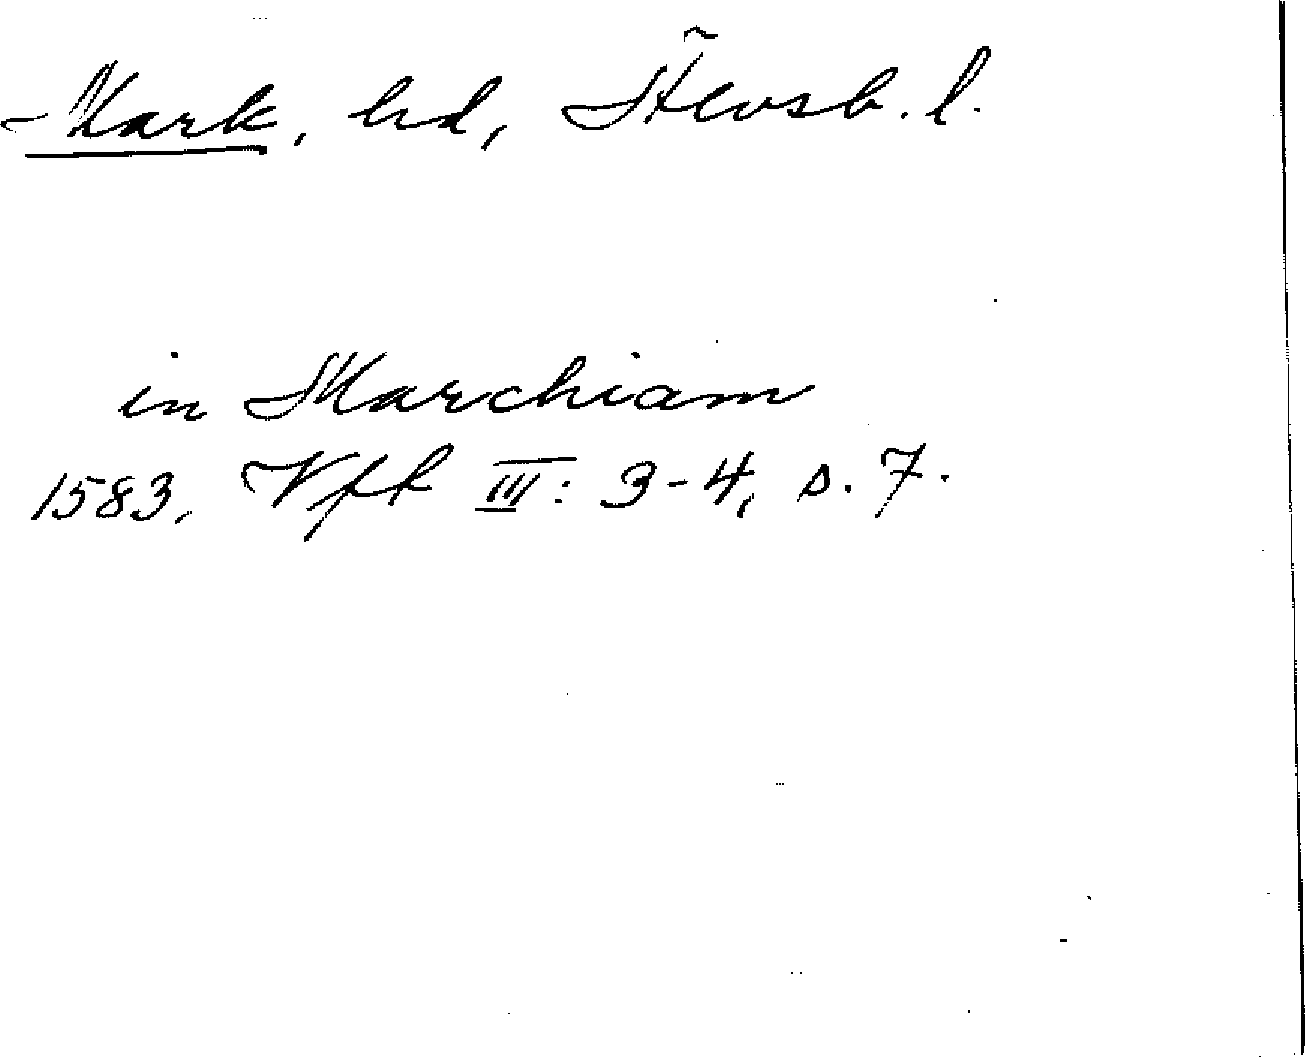 Mark, hd, Älvsb. l.
in Marchiam
1583, Vfk III: 3-4, s. 7.